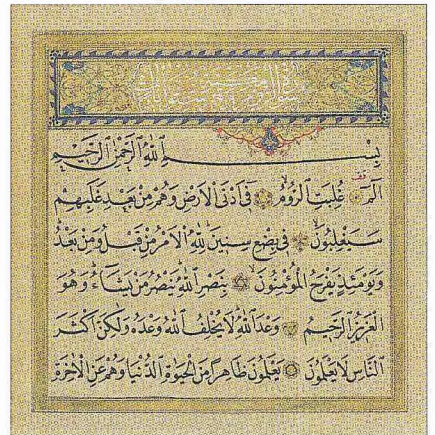 بِسْمِ اللهِ الرَّحْمٰنِ الرَّحِيمِ
الم غُلِبَتِ الرُّومُ فِى اَدْنَى الْاَرْضِ وَهُمْ مِنْ بَعْدِ غَلَبِهِمْ
سَيَغْلِبُونَ فِى بِضْعِ سِنِينَ لِلّٰهِ الْاَمْرُ مِنْ قَبْلُ وَمِنْ بَعْدُ
وَيَوْمَئِذٍ يَفْرَحُ الْمُؤْمِنُونَ بِنَصْرِ اللهِ يَنْصُرُ مَنْ يَشَاءُ وَهُوَ
الْعَزِيزُ الرَّحِيمُ وَعْدَ اللهِ لَا يُخْلِفُ اللهُ وَعْدَهُ وَلٰكِنَّ اَكْثَرَ
النَّاسِ لَا يَعْلَمُونَ يَعْلَمُونَ ظَاهِرًا مِنَ الْحَيٰوةِ الدُّنْيَا وَهُمْ عَنِ الْاٰخِرَةِ